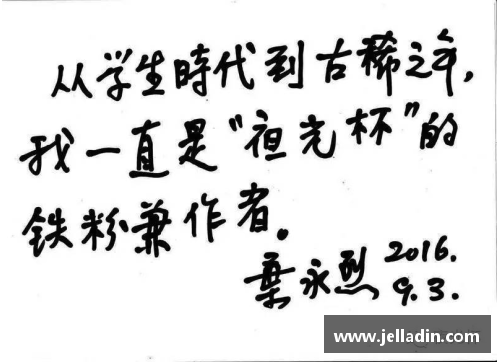 从学生時代到古稀之年，
我一直是“祖光杯”的
铁粉兼作者。
葉永烈 2016.
9.3.
www.jelladin.com